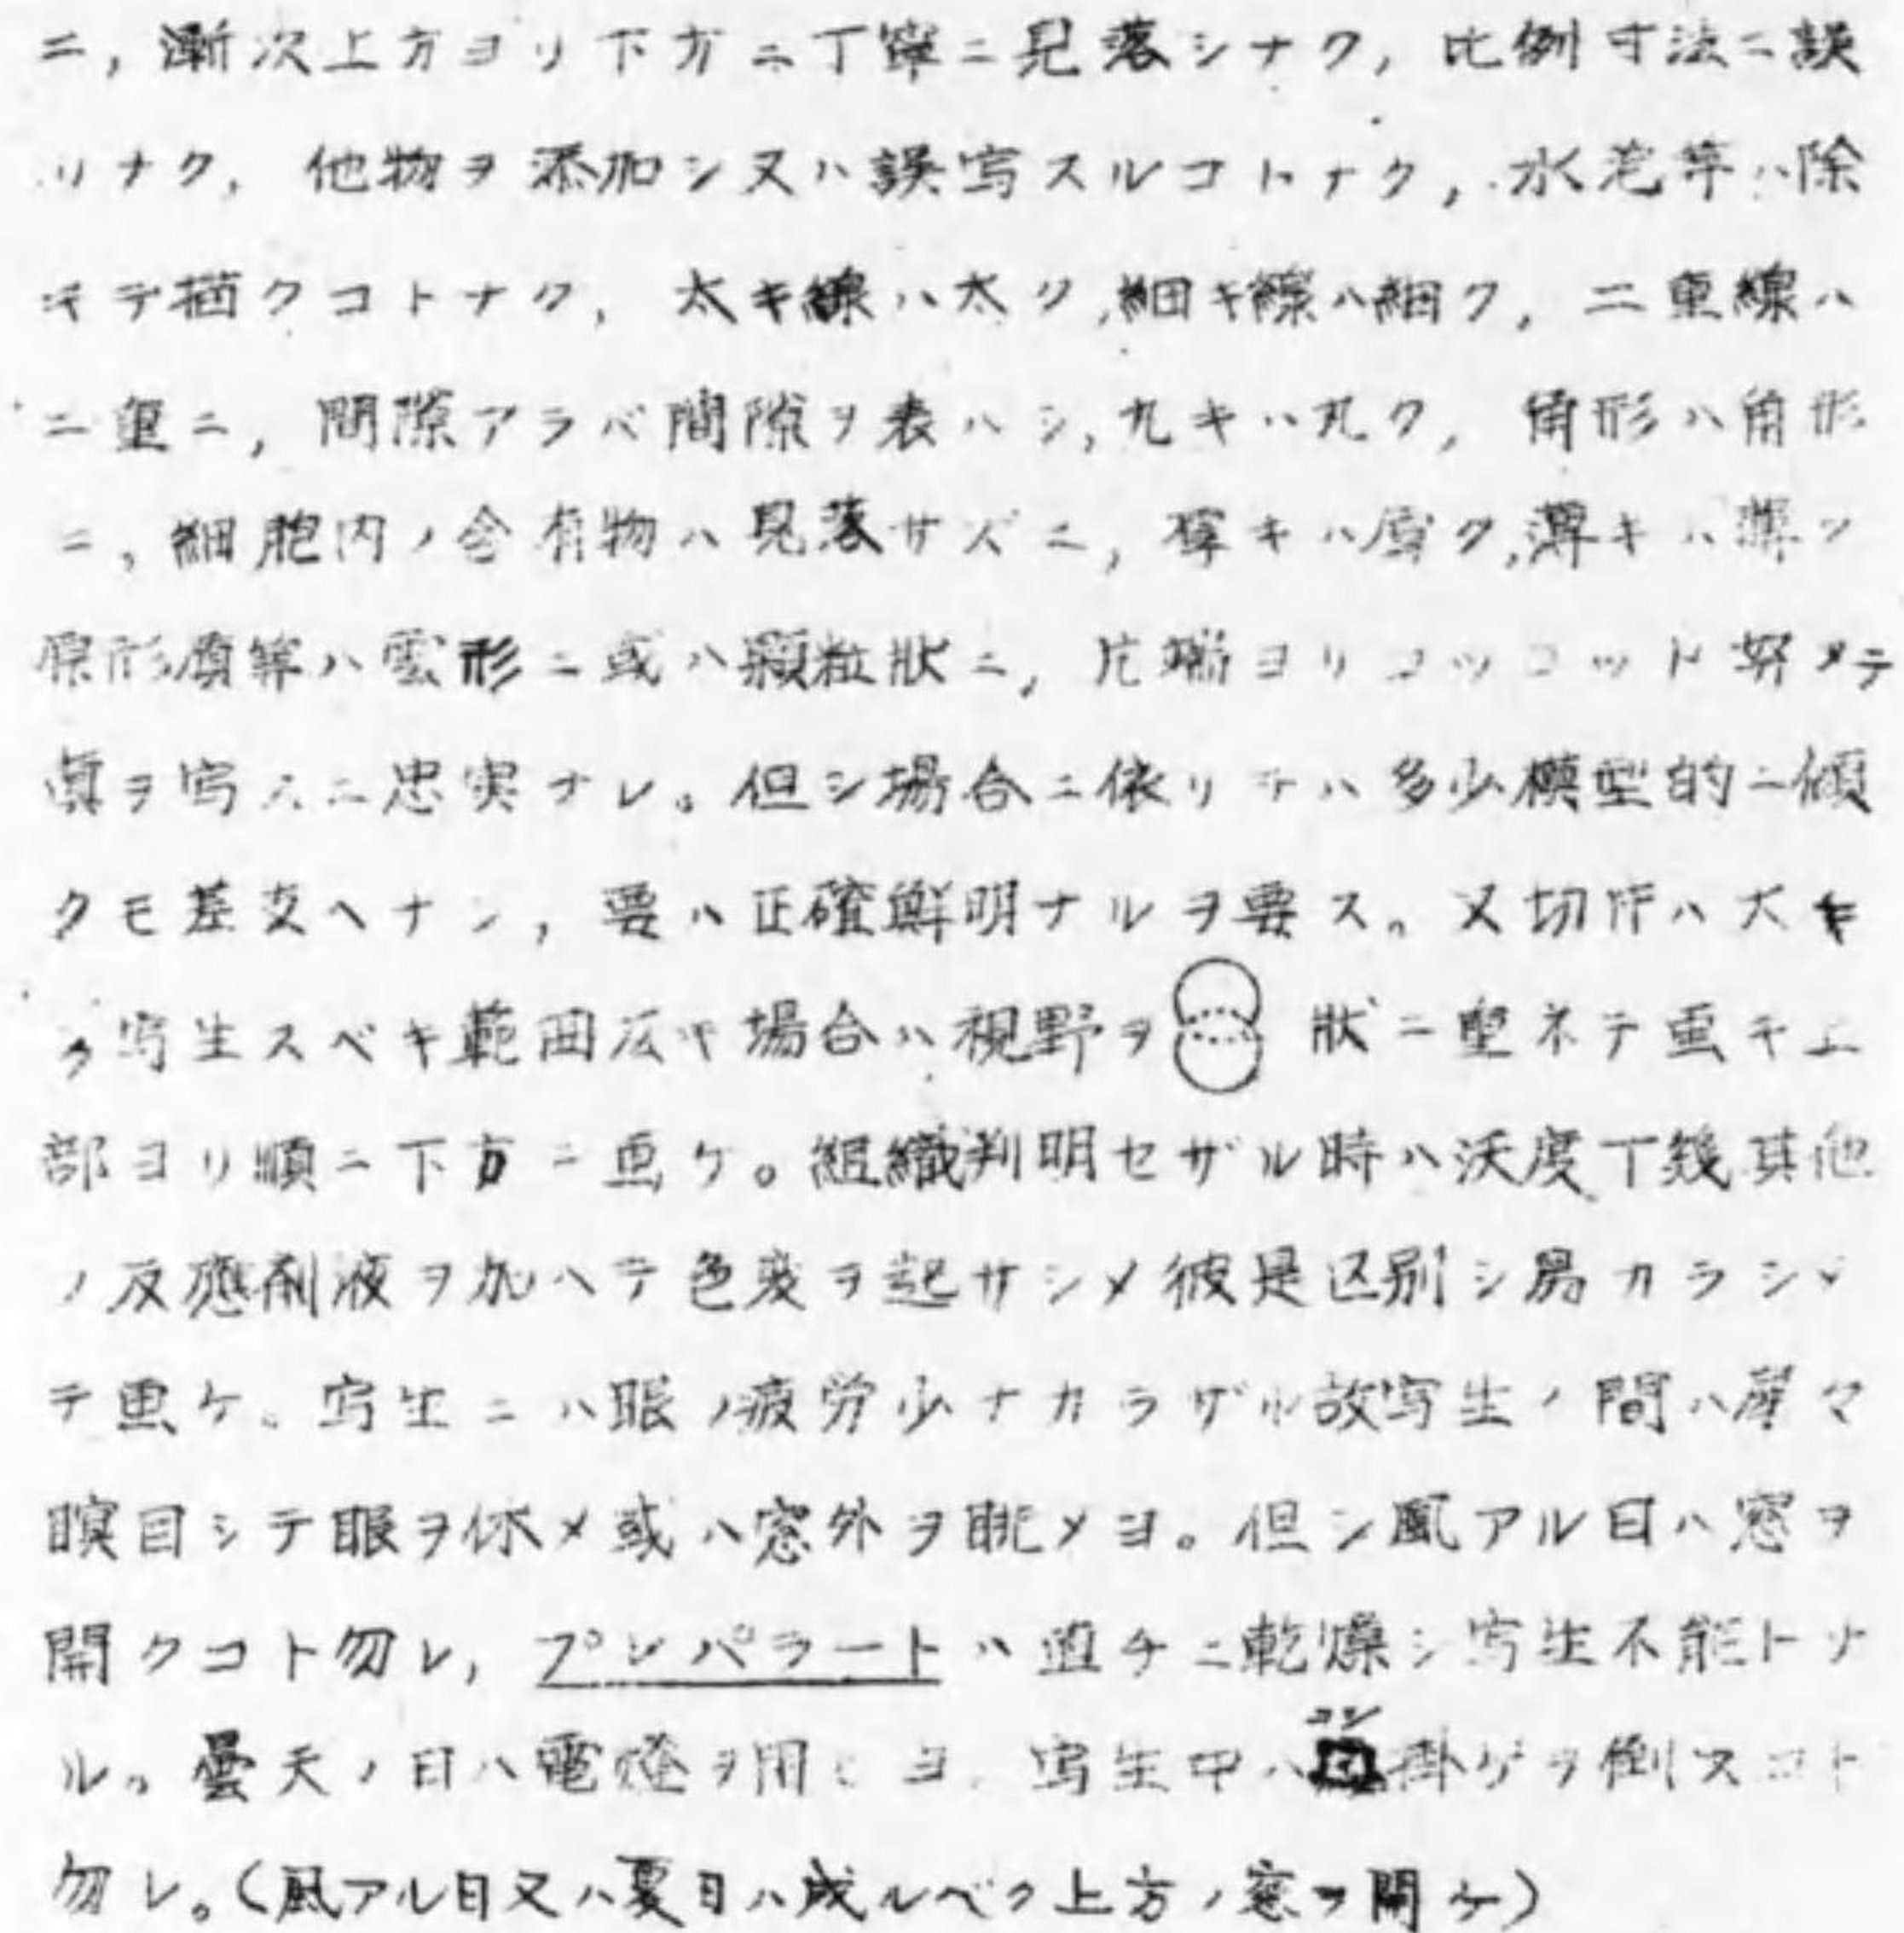 ニ,漸次上方ヨリ下方ニ丁寧ニ見落シナク,比例寸法ニ誤
リナク,他物ヲ添加シ又ハ誤写スルコトナク,水泡等ハ除
キテ描クコトナク,太キ線ハ太ク,細キ線ハ細ク,二重線ハ
二重ニ,間隙アラバ間隙ヲ表ハシ,丸キハ丸ク,角形ハ角形
ニ,細胞内ノ含有物ハ見落サズニ,厚キハ厚ク,薄キハ薄ク
原形質等ハ雲形ニ或ハ顆粒状ニ,片端ヨリコツコツト努メテ
眞ヲ写スニ忠実ナレ。但シ場合ニ依リテハ多少模型的ニ傾
クモ差支ヘナシ,要ハ正確鮮明ナルヲ要ス。又切片ハ大キ
ク写生スベキ範囲広キ場合ハ視野ヲ 状ニ重ネテ画キ上
部ヨリ順ニ下方ニ画ケ。組織判明セザル時ハ沃度丁幾其他
ノ反應剤液ヲ加ヘテ色変ヲ起サシメ彼是区別シ易カラシメ
テ画ケ。写生ニハ眼ノ疲労少ナカラザル故写生ノ間ハ屡々
瞑目シテ眼ヲ休メ或ハ窓外ヲ眺メヨ。但シ風アル日ハ窓ヲ
開クコト勿レ,プレパラートハ直チニ乾燥シ写生不能トナ
ル。曇天ノ日ハ電燈ヲ用ヒヨ.写生中ハ掛ケヲ倒スコト
勿レ。(風アル日又ハ夏日ハ成ルベク上方ノ窓ヲ開ケ)